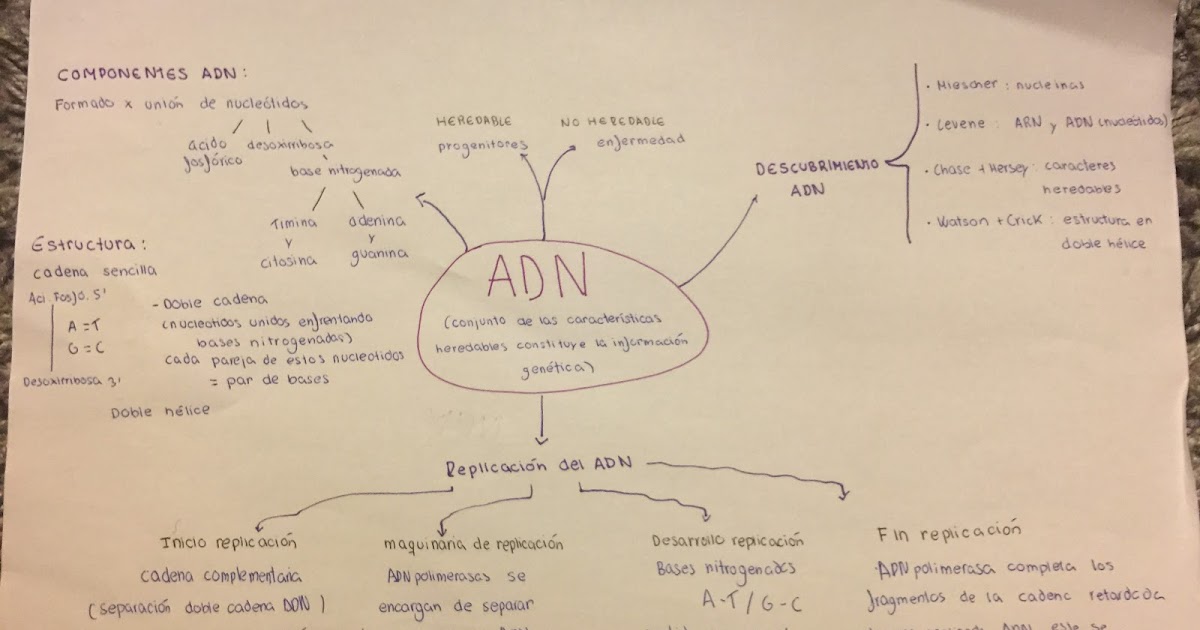 COMPONENTES ADN:
Formado x unión de nucleótidos
ácido
fosfórico
desoxirribosa
base nitrogenada
Timina
y
citosina
adenina
y
guanina
HEREDABLE
progenitores
NO HEREDABLE
enfermedad
DESCUBRIMIENTO
ADN
· Miescher: nucleinas
· Levene: ARN y ADN (nucleótidos)
· Chase + Hersey: caracteres
heredables
· Watson + Crick: estructura en
doble hélice
Estructura:
cadena sencilla
Aci. Fosfó. 5'
A = T
G = C
Desoxirribosa 3'
- Doble cadena
(nucleotidos unidos enfrentando
bases nitrogenadas)
cada pareja de estos nucleotidos
= par de bases
Doble hélice
ADN
(conjunto de las características
heredables constituye la información
genética)
Replicación del ADN
Inicio replicación
cadena complementaria
(separación doble cadena ADN)
maquinaria de replicación
ADN polimerasas se
encargan de separar
Desarrollo replicación
Bases nitrogenadas
A-T / G-C
Fin replicación
·ADN polimerasa completa los
fragmentos de la cadena retardada